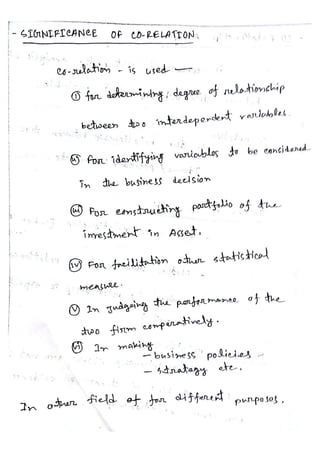 - SIGNIFICANCE OF CO-RELATION:
co-relation - is used —
(i) for determining degree of relationship
between two interdependent variables.
(ii) For identifying variables to be considered
in the business decision
(iii) For constructing portfolio of the
investment in Asset.
(iv) For facilitation other statistical
measure.
(v) In judging the performance of the
two firm comperatively.
(vi) In making
- business policies
- strategy etc.
In other field of for different purposes.